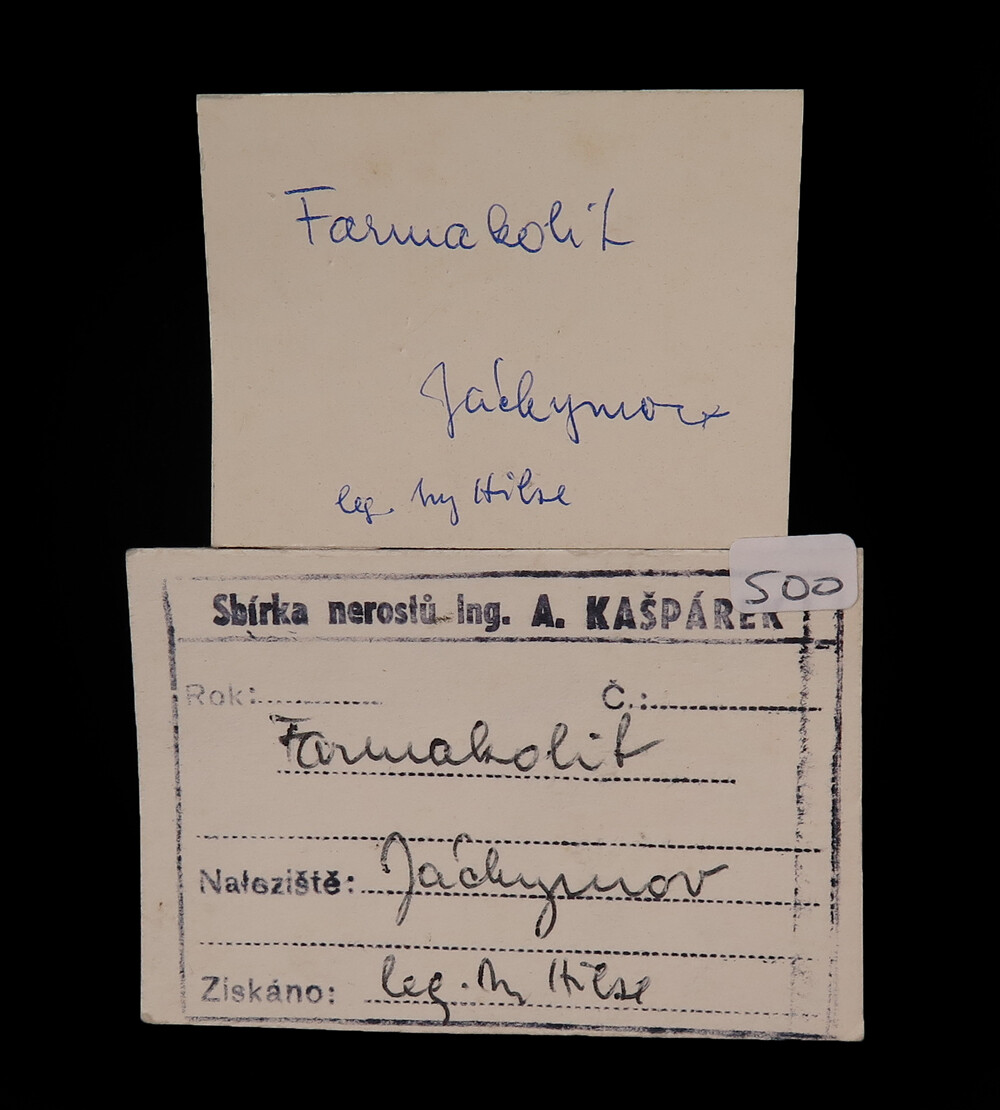 Farmakolit
Jáchymov
leg. Ing Hilse
500
Sbírka nerostů Ing. A. KAŠPÁREK
Rok: Č.:
Farmakolit
Naleziště: Jáchymov
Získáno: leg. Ing Hilse